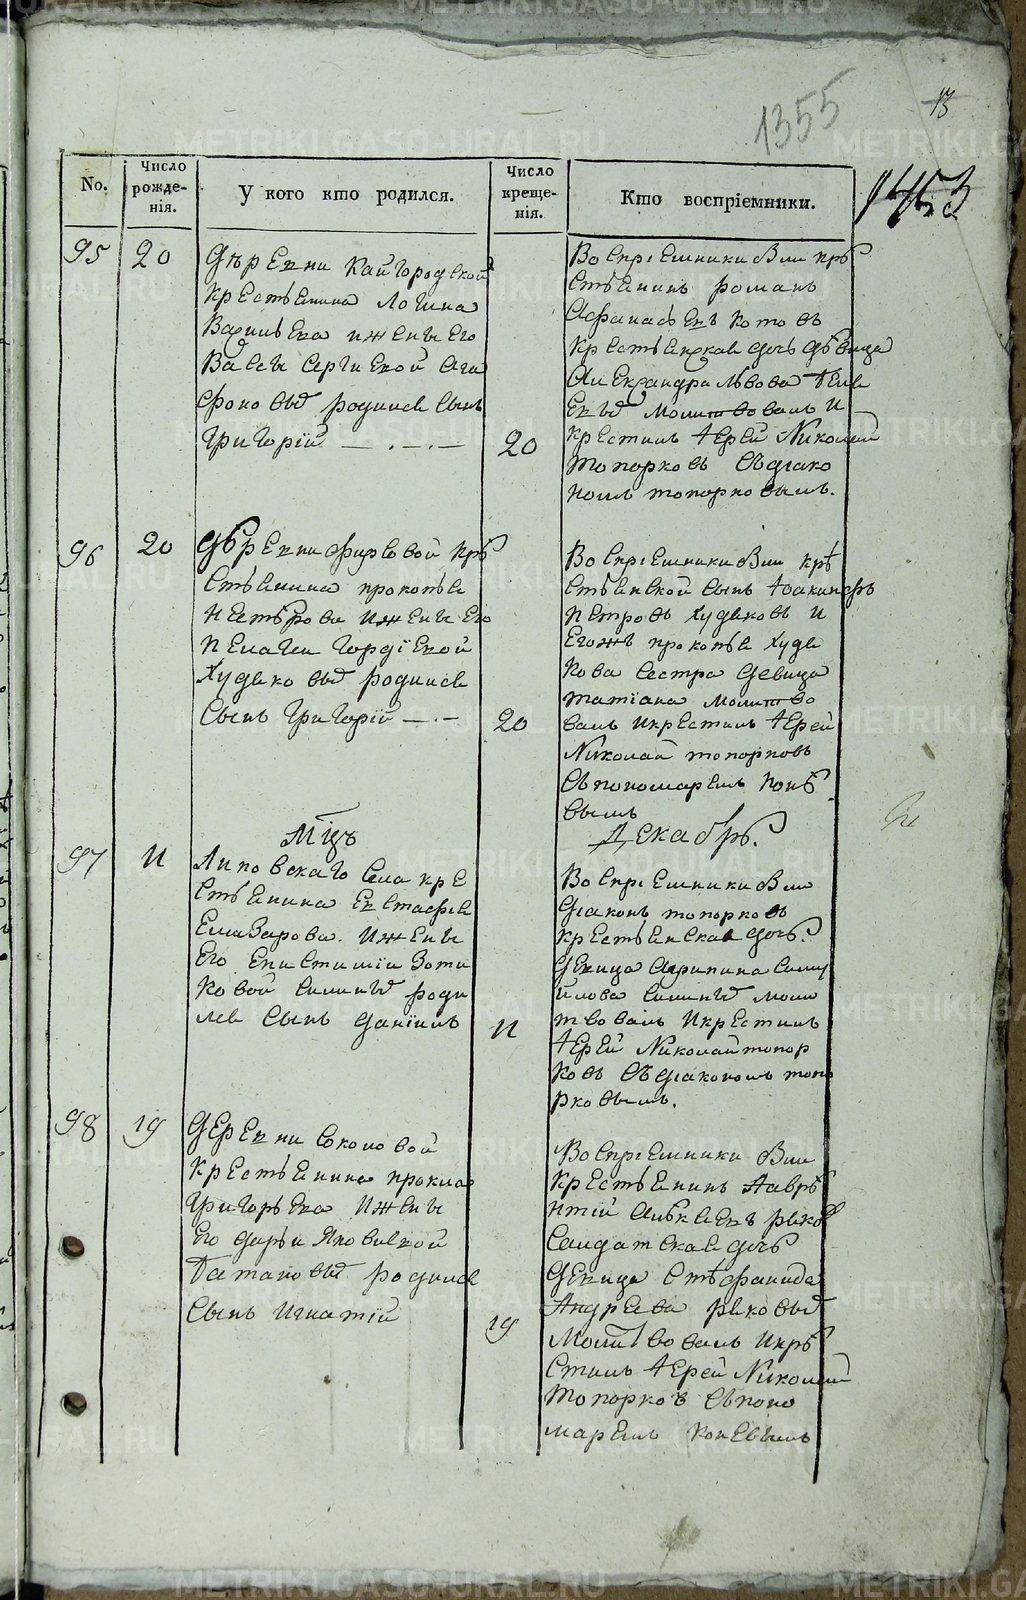 1355
13
1453
No.
Число рожде-нія.
У кого кто родился.
Число креще-нія.
Кто воспріемники.
95
20
Дѣревни Кайгородской
крестьянина Логина
Васильева ижены его
Васы Сергиевой Ага
фоновыхъ родился сынъ
Григорій
20
Воспріемники были кре
стьянинъ романъ
Афанасьевъ котовъ
крестьянская дочь дѣвица
Александра Львова
молитвовалъ и
крестилъ Іерей Николай
топорковъ съдіако
номъ топорковымъ.
96
20
Дѣревни Фирсовой кре
стьянина прокопья
нестерова ижены его
пелагеи Гордѣевой
Худяковыхъ родился
сынъ Григорій
20
Воспріемники были кре
стьянской сынъ Іоакинфъ
петровъ Худяковъ и
егожъ прокопья Худя
кова сестра девица
татіана молитво
валъ икрестилъ Іерей
Николай топорковъ
съпономаремъ коне
вымъ
Мцъ
Декабрь.
97
11
Липовскаго села кре
стьянина Евстафія
Елиазарова ижены
его епистимии Зоти
ковой роди
лся сынъ даніилъ
11
Воспріемники были
діаконъ топорковъ
крестьянская дочь
девица Агрипина Саму
йлова моли
твовалъ икрестилъ
Іерей Николай топор
ковъ съдіакономъ топо
рковымъ.
98
19
Деревни соколовой
крестьянина прокла
Григорьева ижены
его дарьи Яковлевой
родился
сынъ игнатій
19
Воспріемники были
крестьянинъ Лавре
нтій Алексеевъ
салдатская дочь
девица Стефанида
Андреева
молитвовалъ икре
стилъ Іерей Николай
топорковъ съпоно
маремъ коневымъ
METRIKI.GASO-URAL.RU